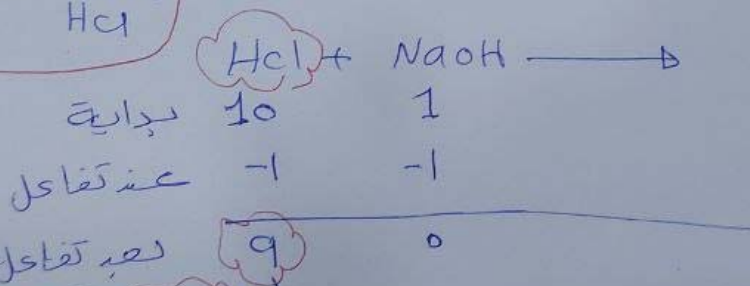 HCl
HCl + NaOH →
بداية 10 1
عند تفاعل -1 -1
بعد تفاعل 9 0